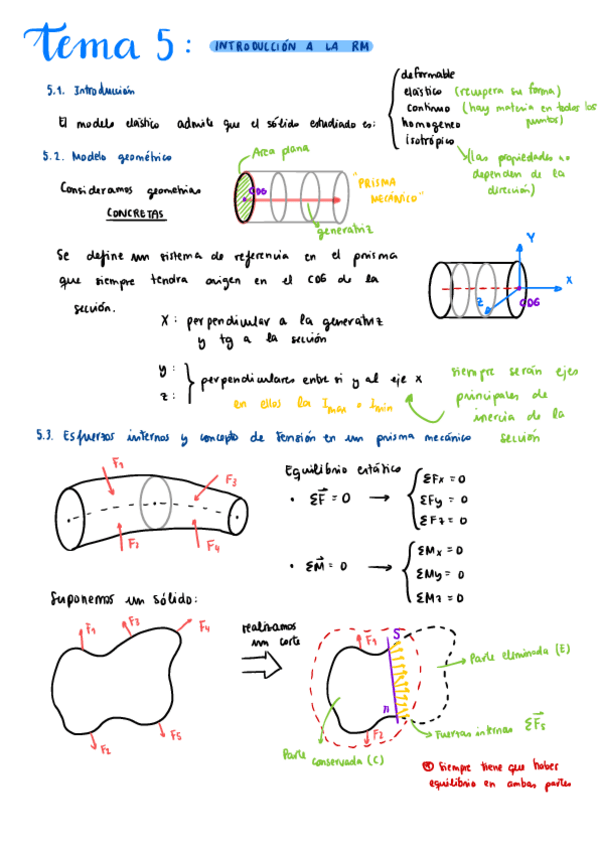 Tema 5: INTRODUCCIÓN A LA RM
5.1. Introducción
El modelo elástico admite que el sólido estudiado es:
deformable
elástico (recupera su forma)
continuo (hay materia en todos los puntos)
homogeneo
isotrópico
(las propiedades no
dependen de la
dirección)
5.2. Modelo geométrico
Area plana
Consideramos geometrias
CONCRETAS
COG
"PRISMA
MECÁNICO"
generatriz
Se define un sistema de referencia en el prisma
que siempre tendra origen en el COG de la
sección.
Y
X
Z
COG
X: perpendicular a la generatriz
y tg a la sección
y:
z:
perpendiculares entre si y al eje x
en ellos la Imax o Imin
siempre serán ejes
principales de
inercia de la
sección
5.3. Esfuerzos internos y concepto de tensión en un prisma mecánico
F1
F3
F2
F4
Equilibrio estático
• ΣF⃗ = 0 → ΣFx = 0
ΣFy = 0
ΣFz = 0
• ΣM⃗ = 0 → ΣMx = 0
ΣMy = 0
ΣMz = 0
Suponemos un sólido:
F1
F3
F4
F2
F5
realizamos
un corte
F1
S
n
F2
Parte eliminada (E)
Fuerzas internas ΣF⃗s
Parte
conservada (C)
* Siempre tiene que haber
equilibrio en ambas partes